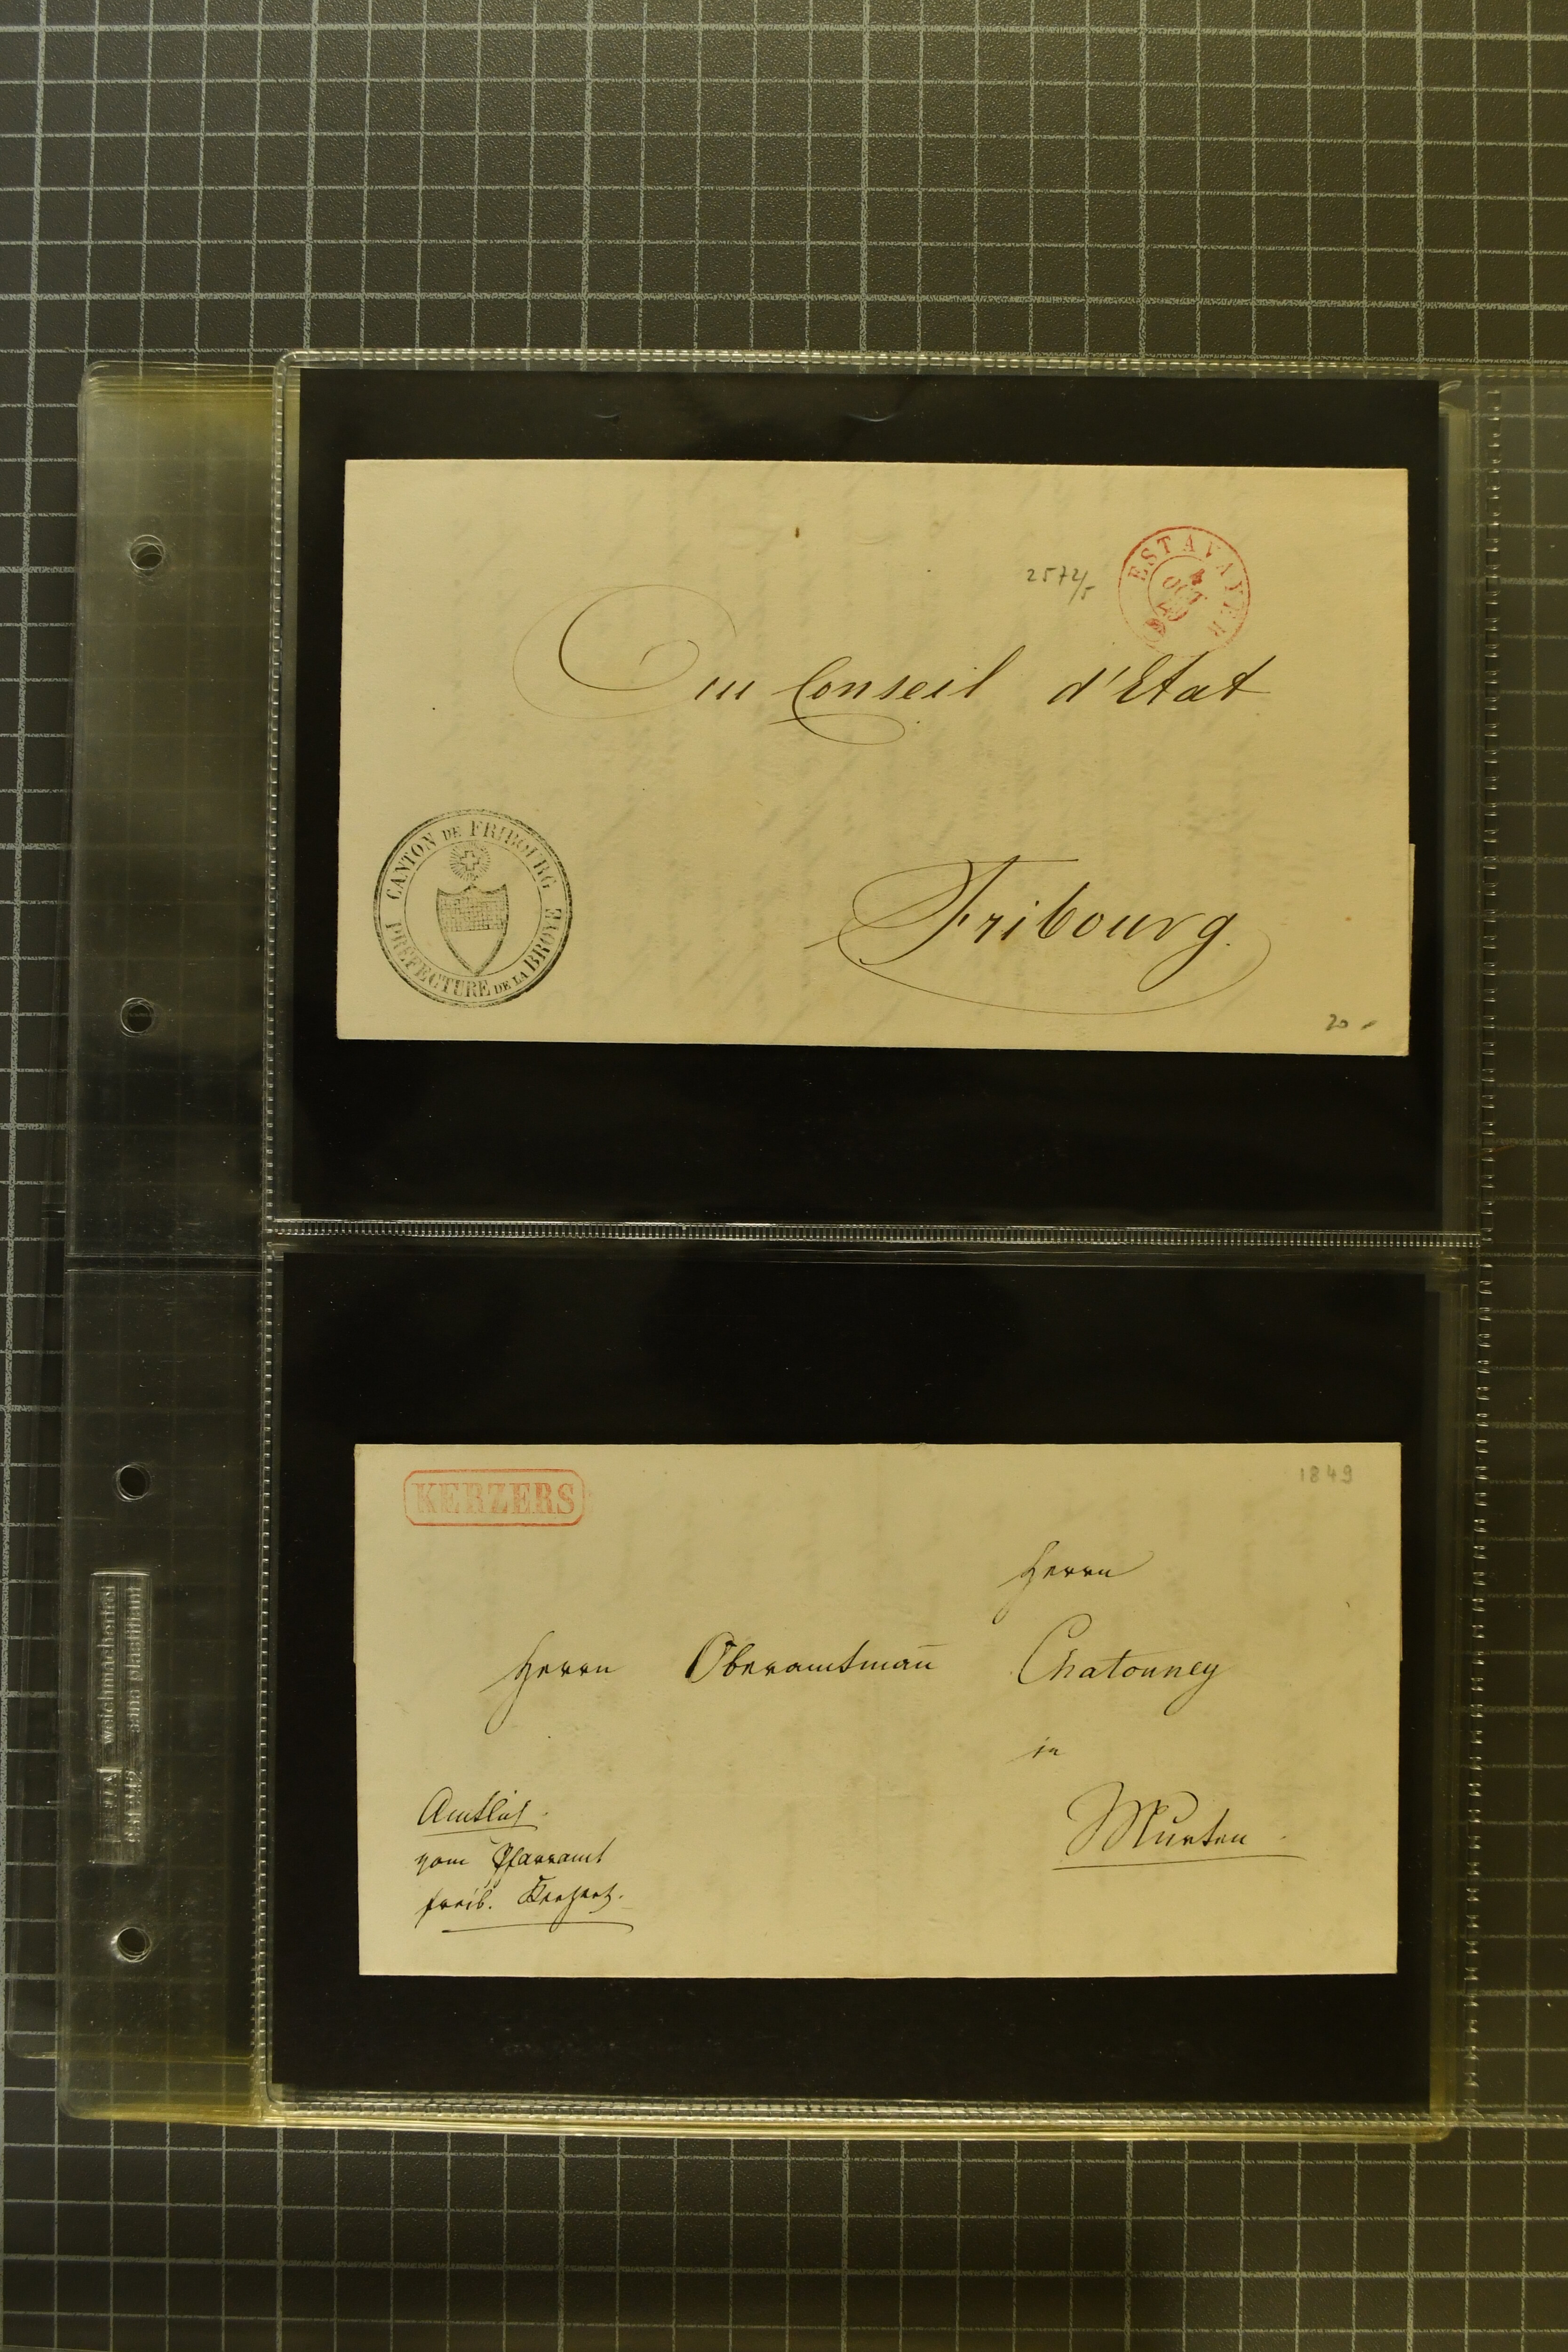 ESTAVAYER
4
OCT
49
2572/5
Au Conseil d'Etat
Fribourg.
CANTON DE FRIBOURG
PRÉFECTURE DE LA BROYE
20 -
KERZERS
1849
Herrn
Herrn Oberamtmañ Chatonney
in
Murten
Amtlich.
vom Pfarramt
freib. Kerzerz.
weichmacherfrei
sans plastifiant